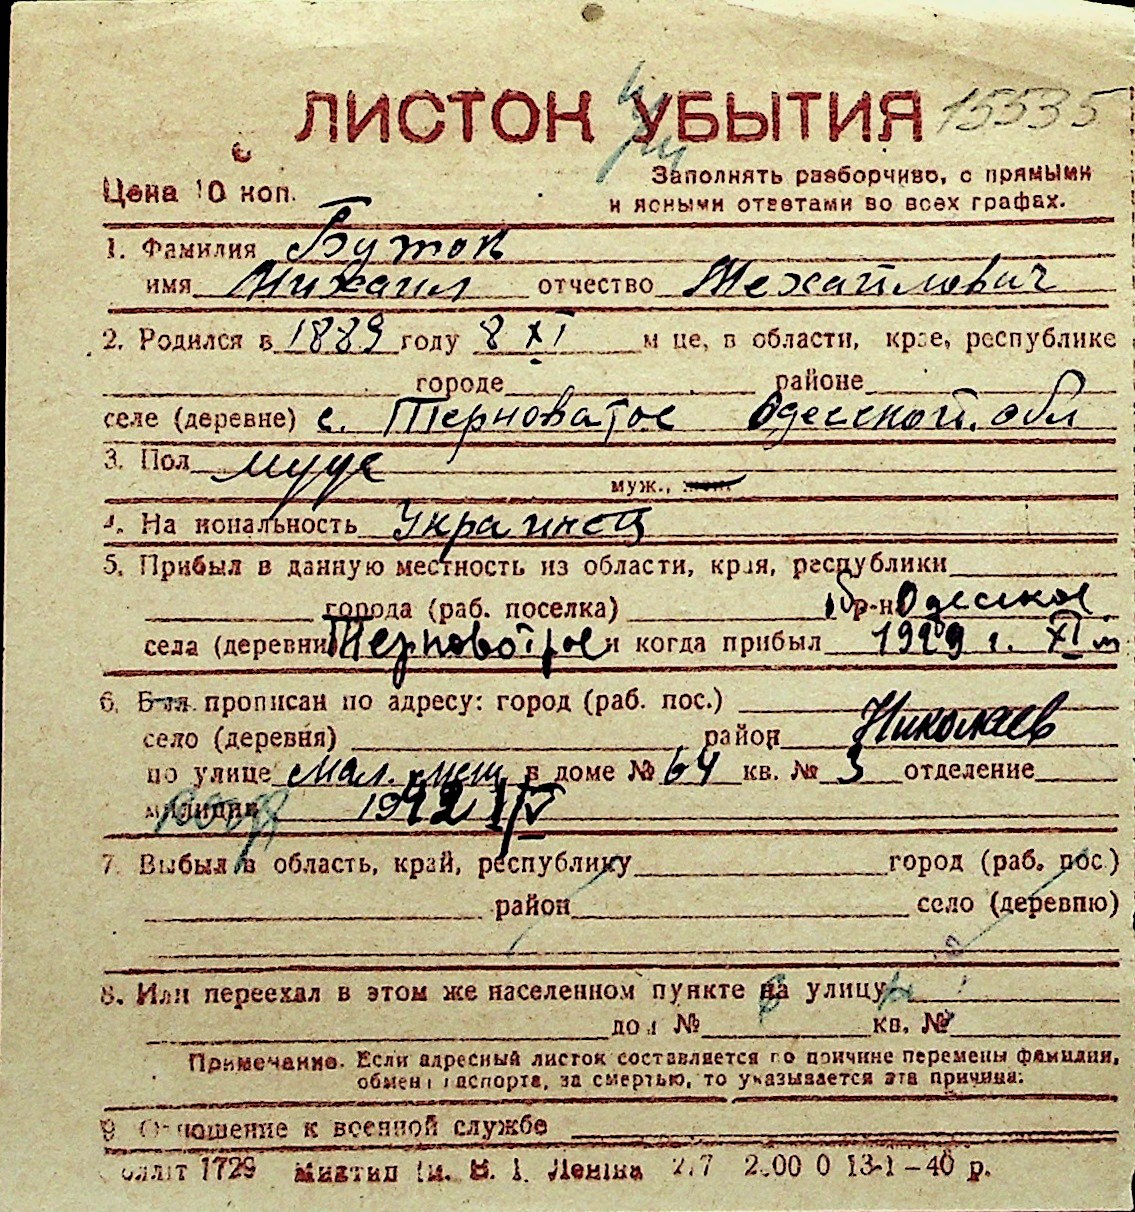 ЛИСТОК УБЫТИЯ 15535
Цена 10 коп.
Заполнять разборчиво, с прямыми
и ясными ответами во всех графах.
1. Фамилия Буток
имя Михаил отчество Михайлович
2. Родился в 1889 году 8 XI м це, в области, крае, республике
городе районе
селе (деревне) с. Терноватое Одесской обл
3. Пол муж
муж.,
4. На иональность Украинец
5. Прибыл в данную местность из области, края, республики
города (раб. поселка) р-н Одесской
села (деревни и когда прибыл 1929 г. XI м
6. Был прописан по адресу: город (раб. пос.)
село (деревня) район Николаев
по улице Мал. в доме № 64 кв. № 3 отделение
милиции 1942 IV
7. Выбыл в область, край, республику город (раб. пос.)
район село (деревню)
8. Или переехал в этом же населенном пункте на улицу
дом № кв. №
Примечание. Если адресный листок составляется по причине перемены фамилии,
обмен паспорта, за смертью, то указывается эта причина:
9 Отношение к военной службе
1729 Миктип Ім. В. І. Леніна 2.00 0 13-1-40 р.